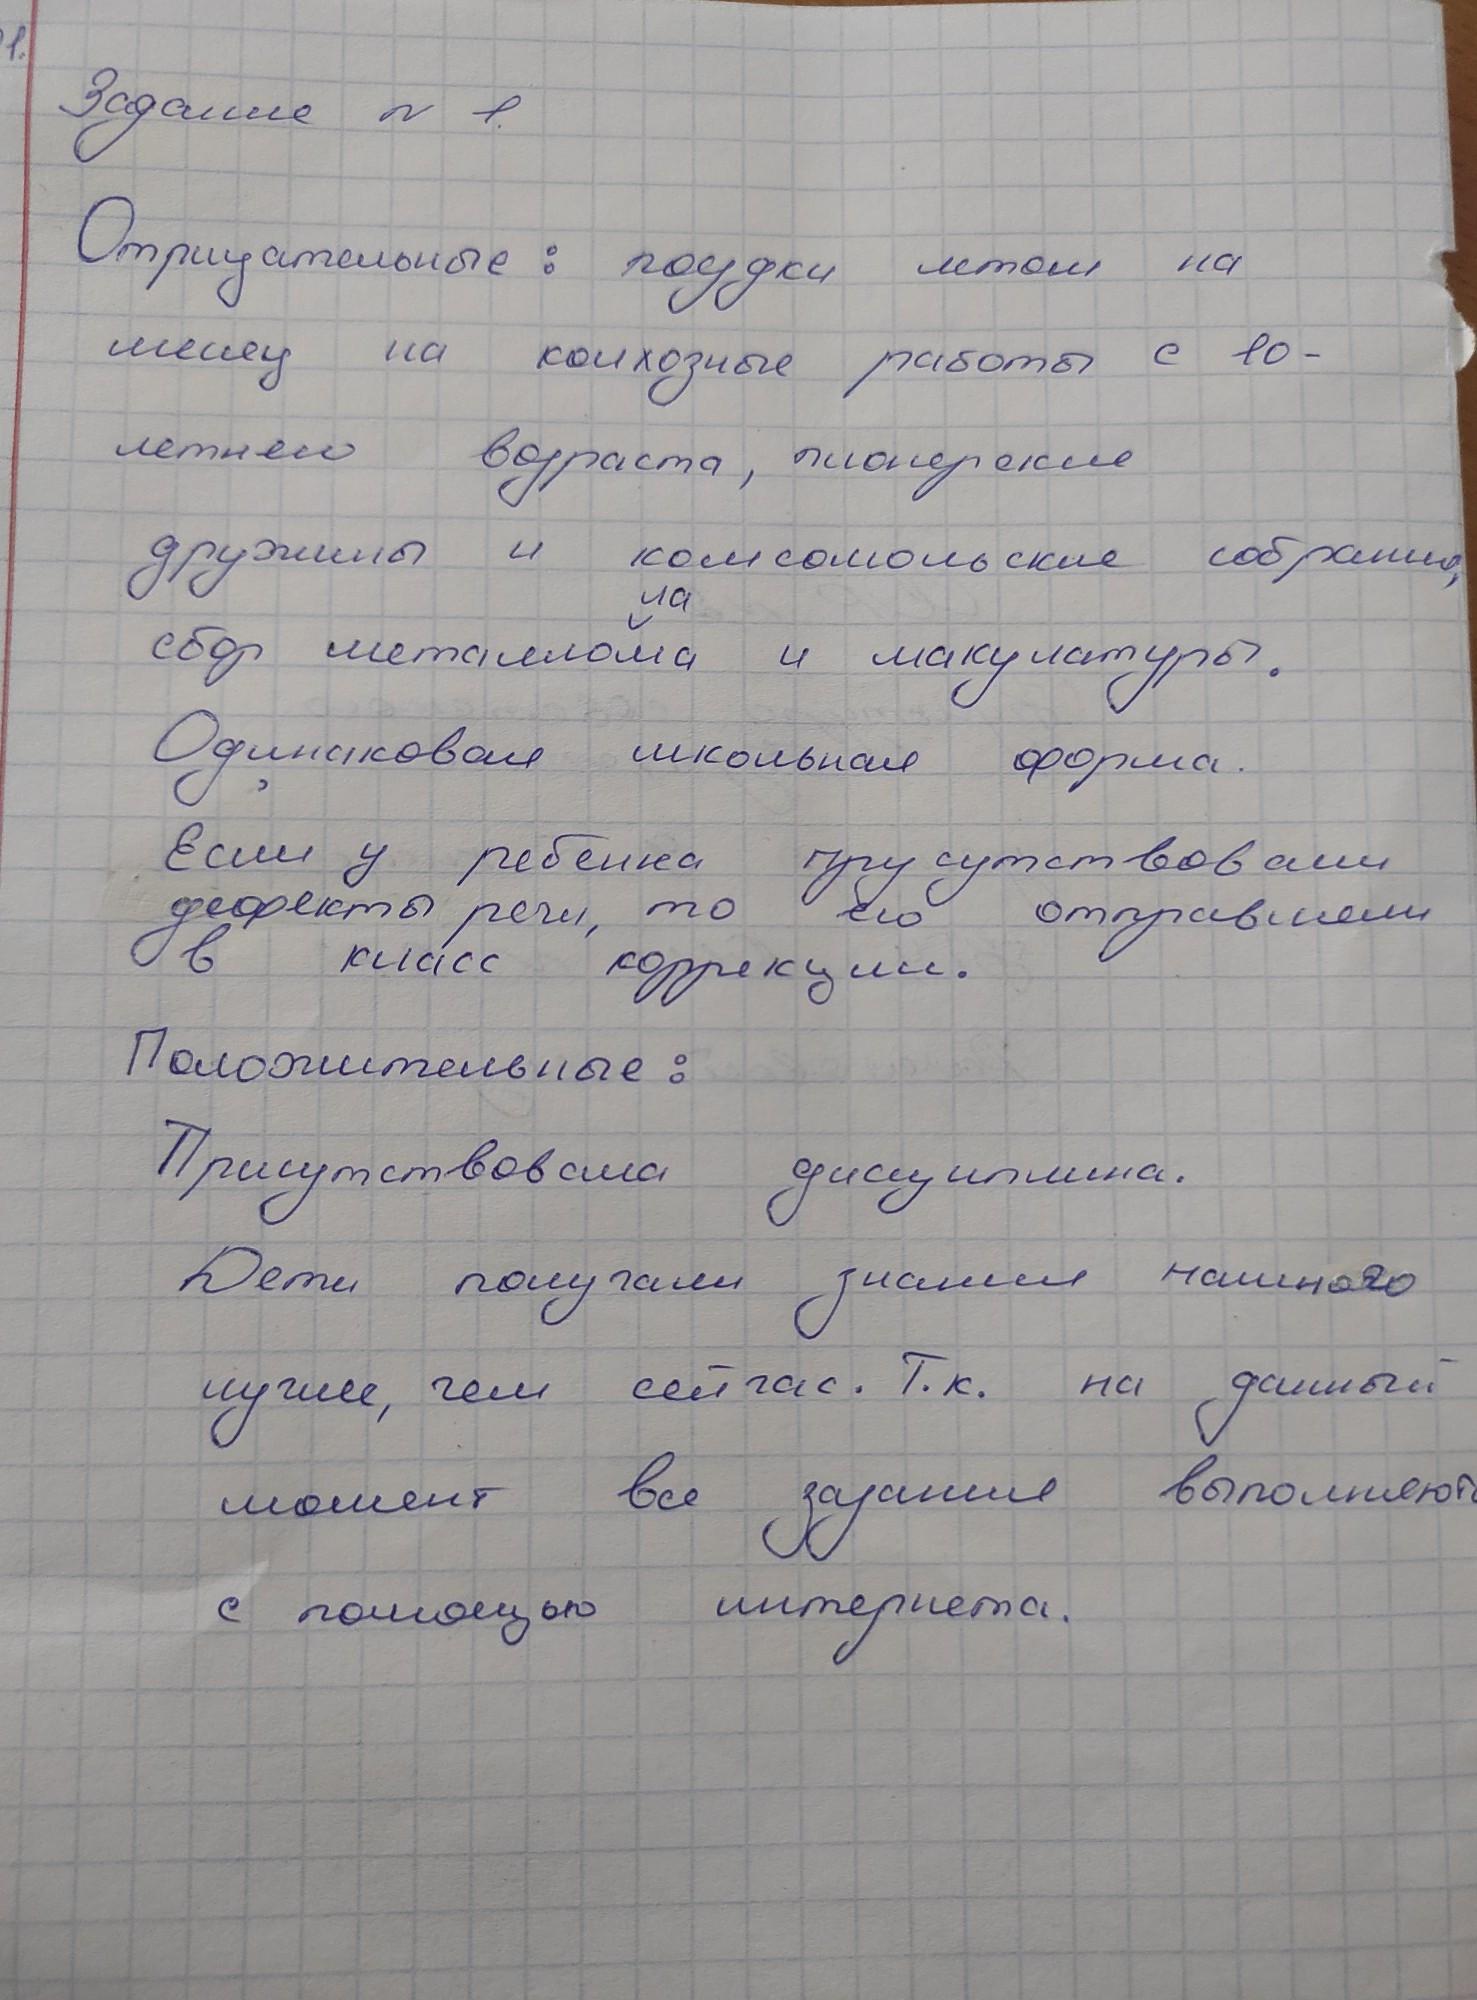 1.
Задание № 1.
Отрицательные: поездки летом на
месяц на колхозные работы с 10-
летнего возраста, пионерские
дружины и комсомольские собрания,
ла
сбор металлома и макулатуры.
Одинаковая школьная форма.
Если у ребенка присутствовали
дефекты речи, то его отправляли
в класс коррекции.
Положительные:
Присутствовала дисциплина.
Дети получали знания намного
лучше, чем сейчас. Т.к. на данный
момент все задания выполняютс
с помощью интернета.